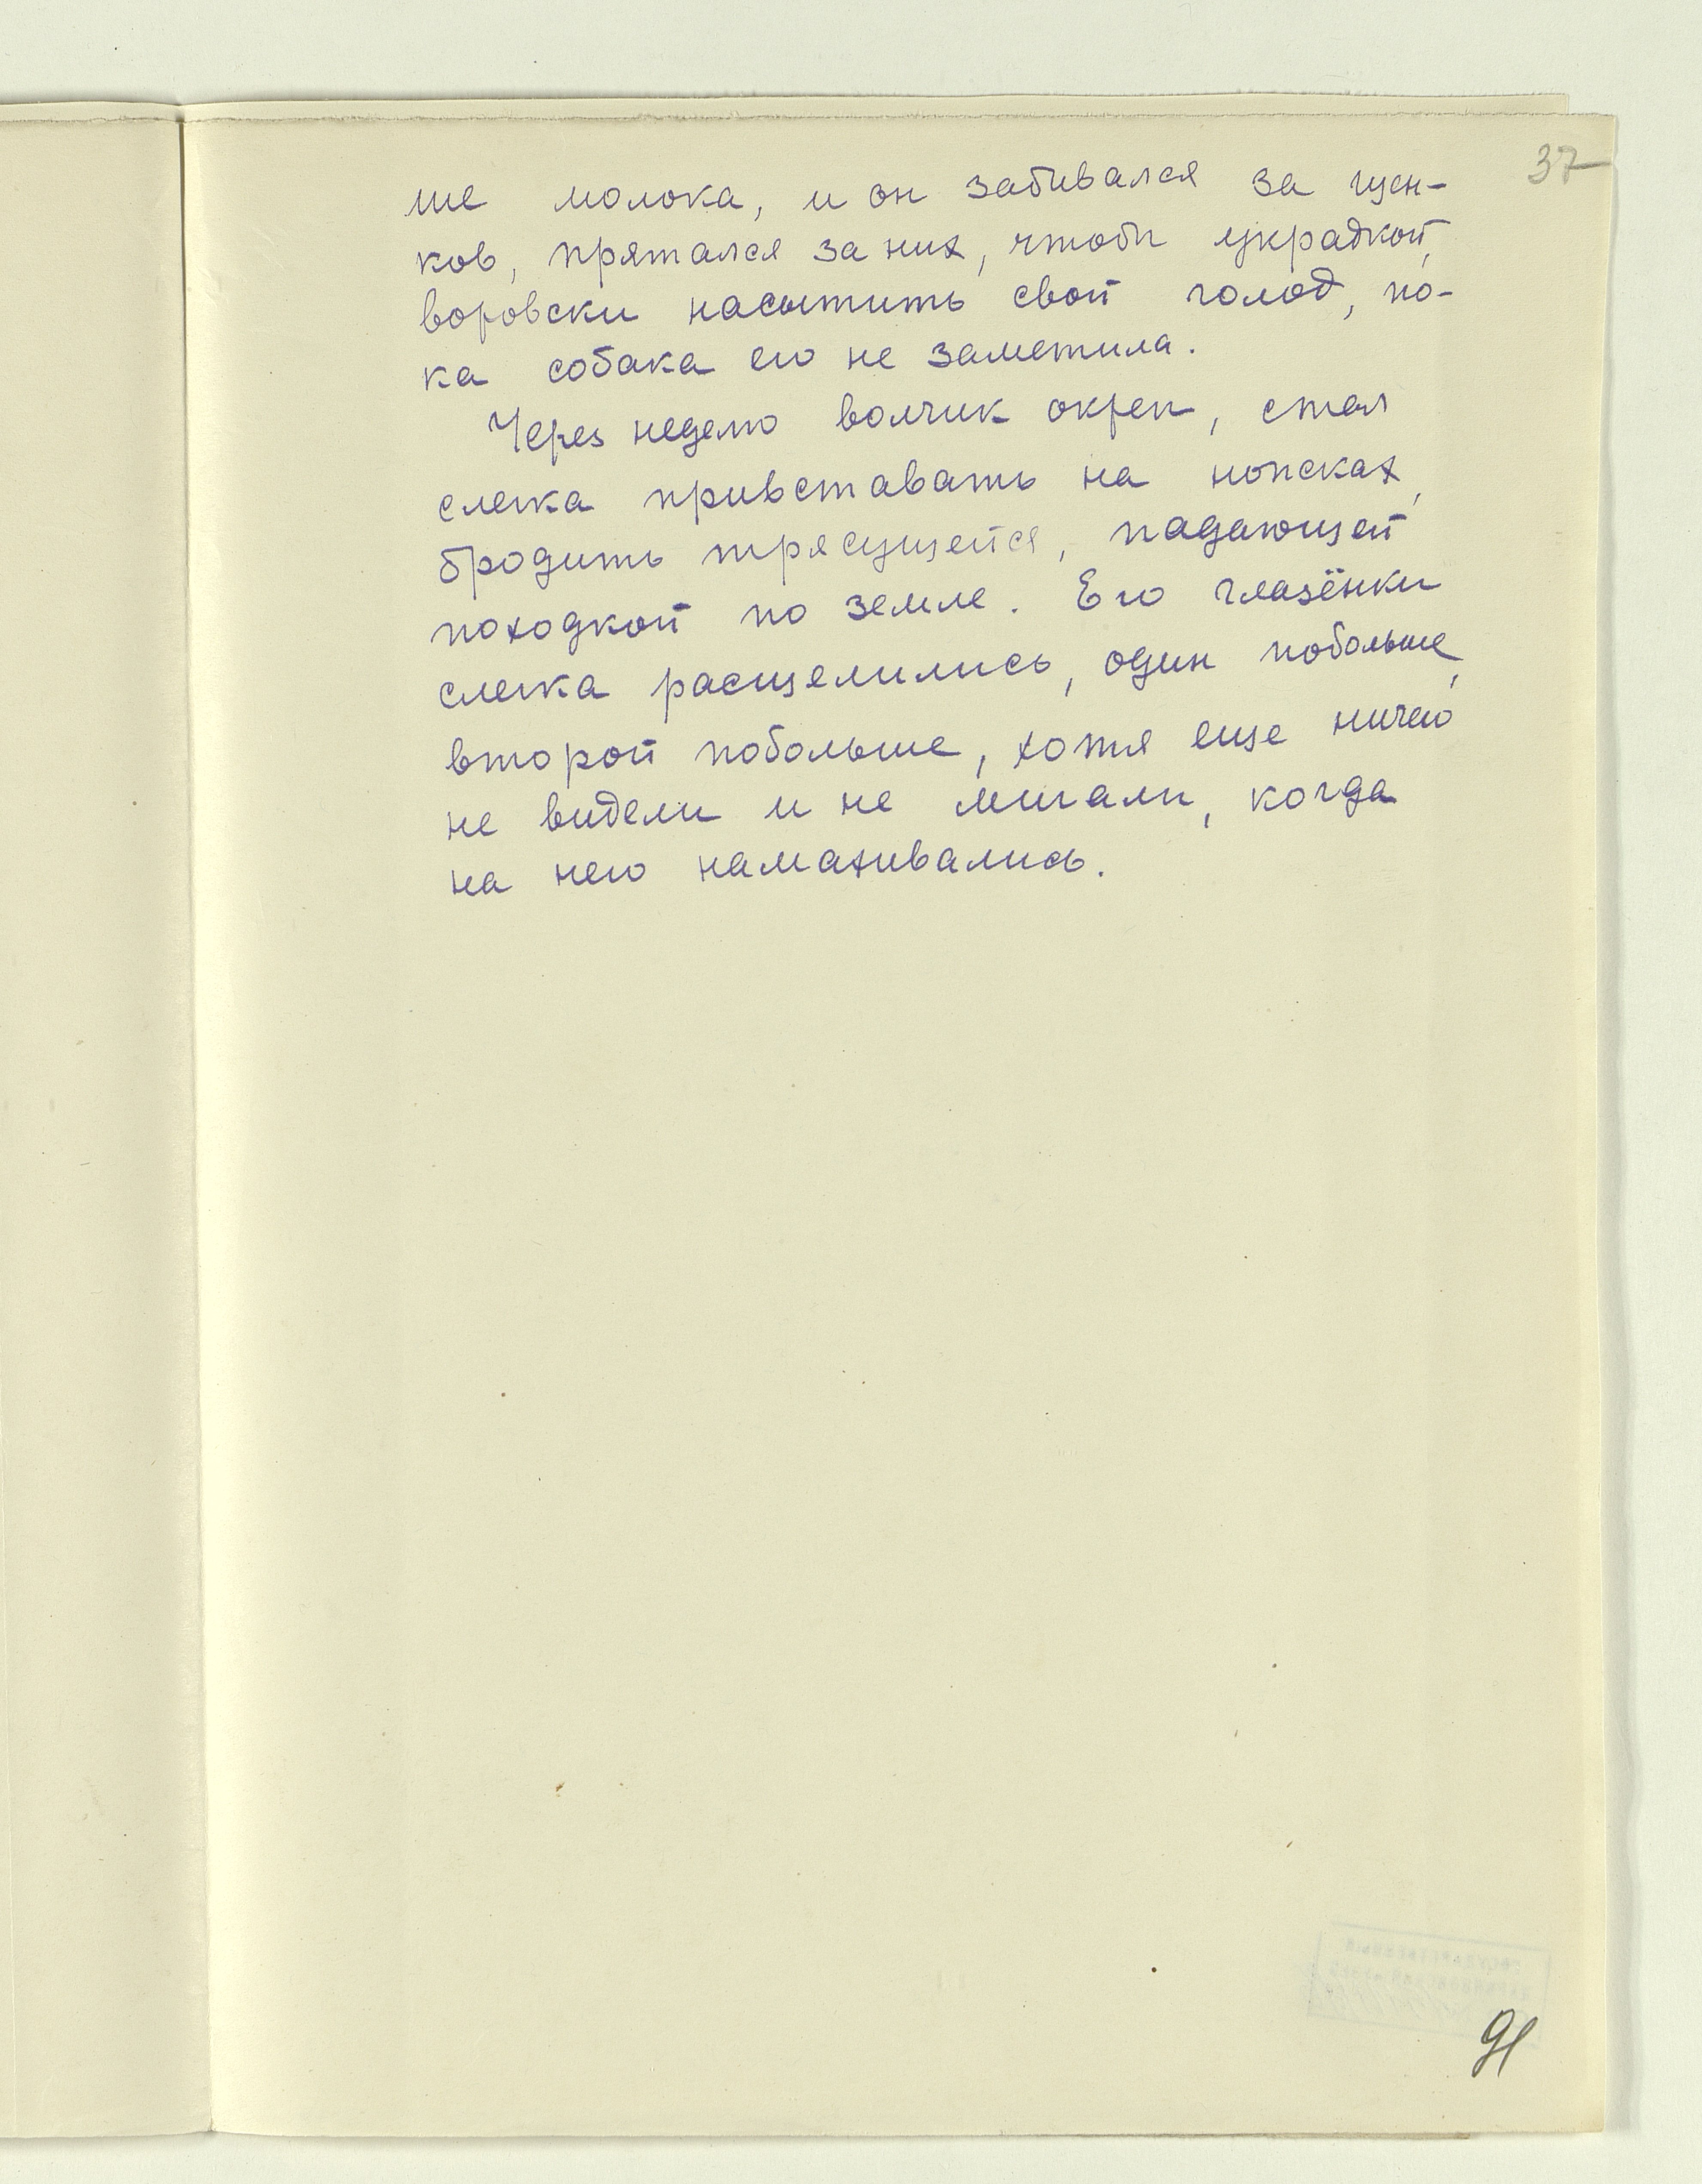 37
ше молока, и он забивался за щен-
ков, прятался за них, чтобы украдкой,
воровски насытить свой голод, по-
ка собака его не заметила.
Через неделю волчик окреп, стал
слегка привставать на ножках,
бродить трясущейся, падающей
походкой по земле. Его глазёнки
слегка расщелились, один побольше,
второй побольше, хотя еще ничего
не видели и не мигали, когда
на него намахивались.
91